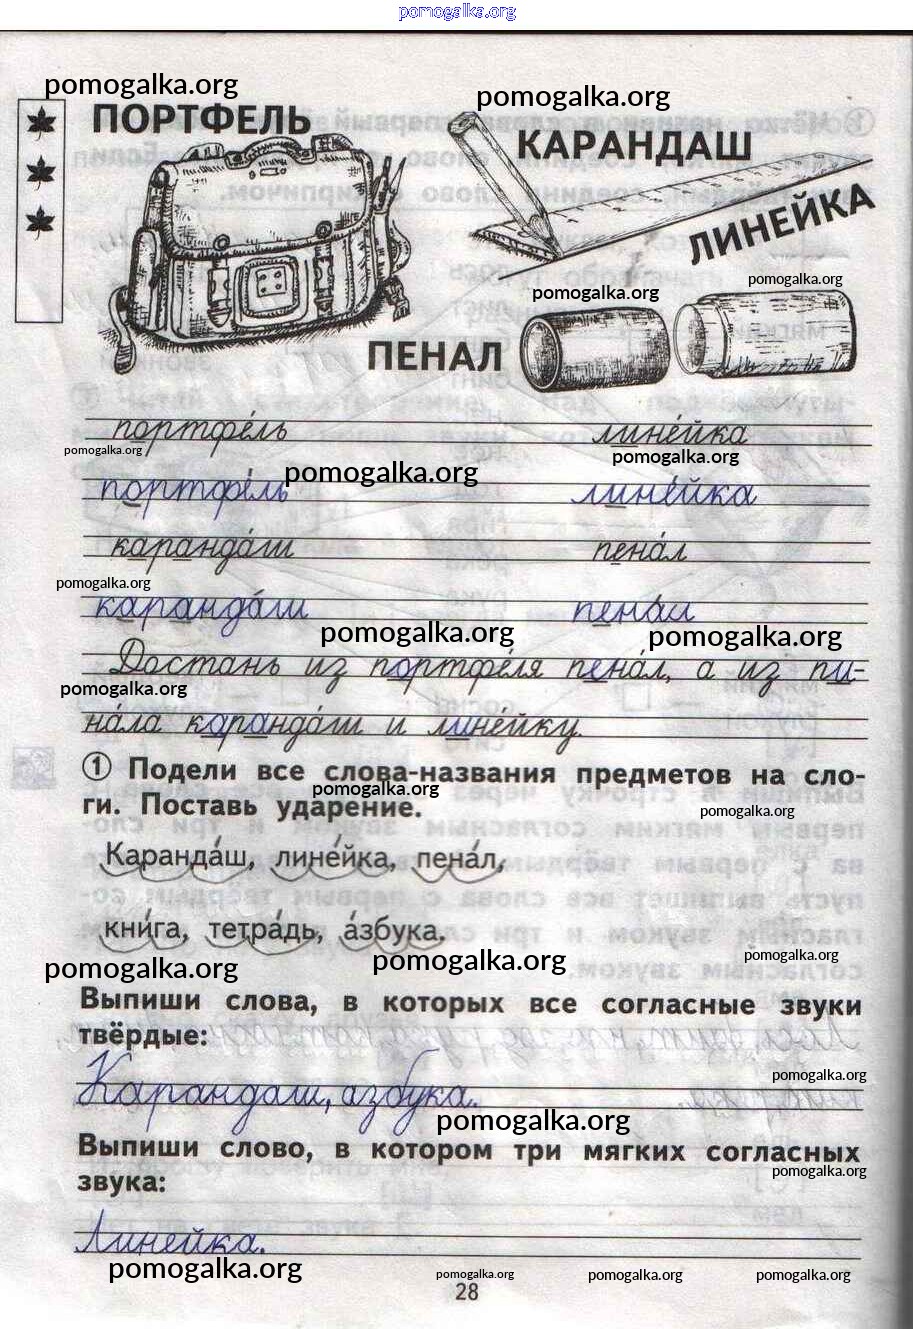 pomogalka.org
pomogalka.org
pomogalka.org
ПОРТФЕЛЬ
КАРАНДАШ
ЛИНЕЙКА
pomogalka.org
pomogalka.org
ПЕНАЛ
портфе́ль лине́йка
pomogalka.org pomogalka.org
pomogalka.org
портфе́ль лине́йка
каранда́ш пена́л
pomogalka.org
каранда́ш пена́л
pomogalka.org pomogalka.org
Достань из портфе́ля пена́л, а из пи-
pomogalka.org
на́ла каранда́ш и лине́йку.
1 Подели все слова-названия предметов на сло-
pomogalka.org
ги. Поставь ударение.
pomogalka.org
Каранда́ш, лине́йка, пена́л,
кни́га, тетра́дь, а́збука.
pomogalka.org pomogalka.org pomogalka.org
Выпиши слова, в которых все согласные звуки
твёрдые:
pomogalka.org
Карандаш, азбука.
pomogalka.org
Выпиши слово, в котором три мягких согласных
pomogalka.org
звука:
Линейка.
pomogalka.org pomogalka.org pomogalka.org pomogalka.org
28